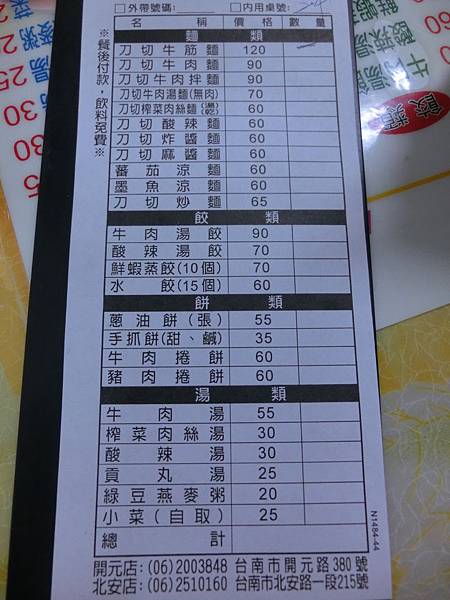 □外帶號碼: □內用桌號:
名稱 價格 數量
麵類
刀切牛筋麵 120
刀切牛肉麵 90
刀切牛肉拌麵 90
刀切牛肉湯麵(無肉) 70
刀切榨菜肉絲麵(湯乾) 60
刀切酸辣麵 60
刀切炸醬麵 60
刀切麻醬麵 60
蕃茄涼麵 60
墨魚涼麵 60
刀切炒麵 65
餃類
牛肉湯餃 90
酸辣湯餃 70
鮮蝦蒸餃(10個) 70
水餃(15個) 60
餅類
蔥油餅(張) 55
手抓餅(甜、鹹) 35
牛肉捲餅 60
豬肉捲餅 60
湯類
牛肉湯 55
榨菜肉絲湯 30
酸辣湯 30
貢丸湯 25
綠豆燕麥粥 20
小菜(自取) 25
總計
開元店:(06)2003848 台南市開元路380號
北安店:(06)2510160 台南市北安路一段215號
※餐後付款,飲料免費※
N1484-44
餃類